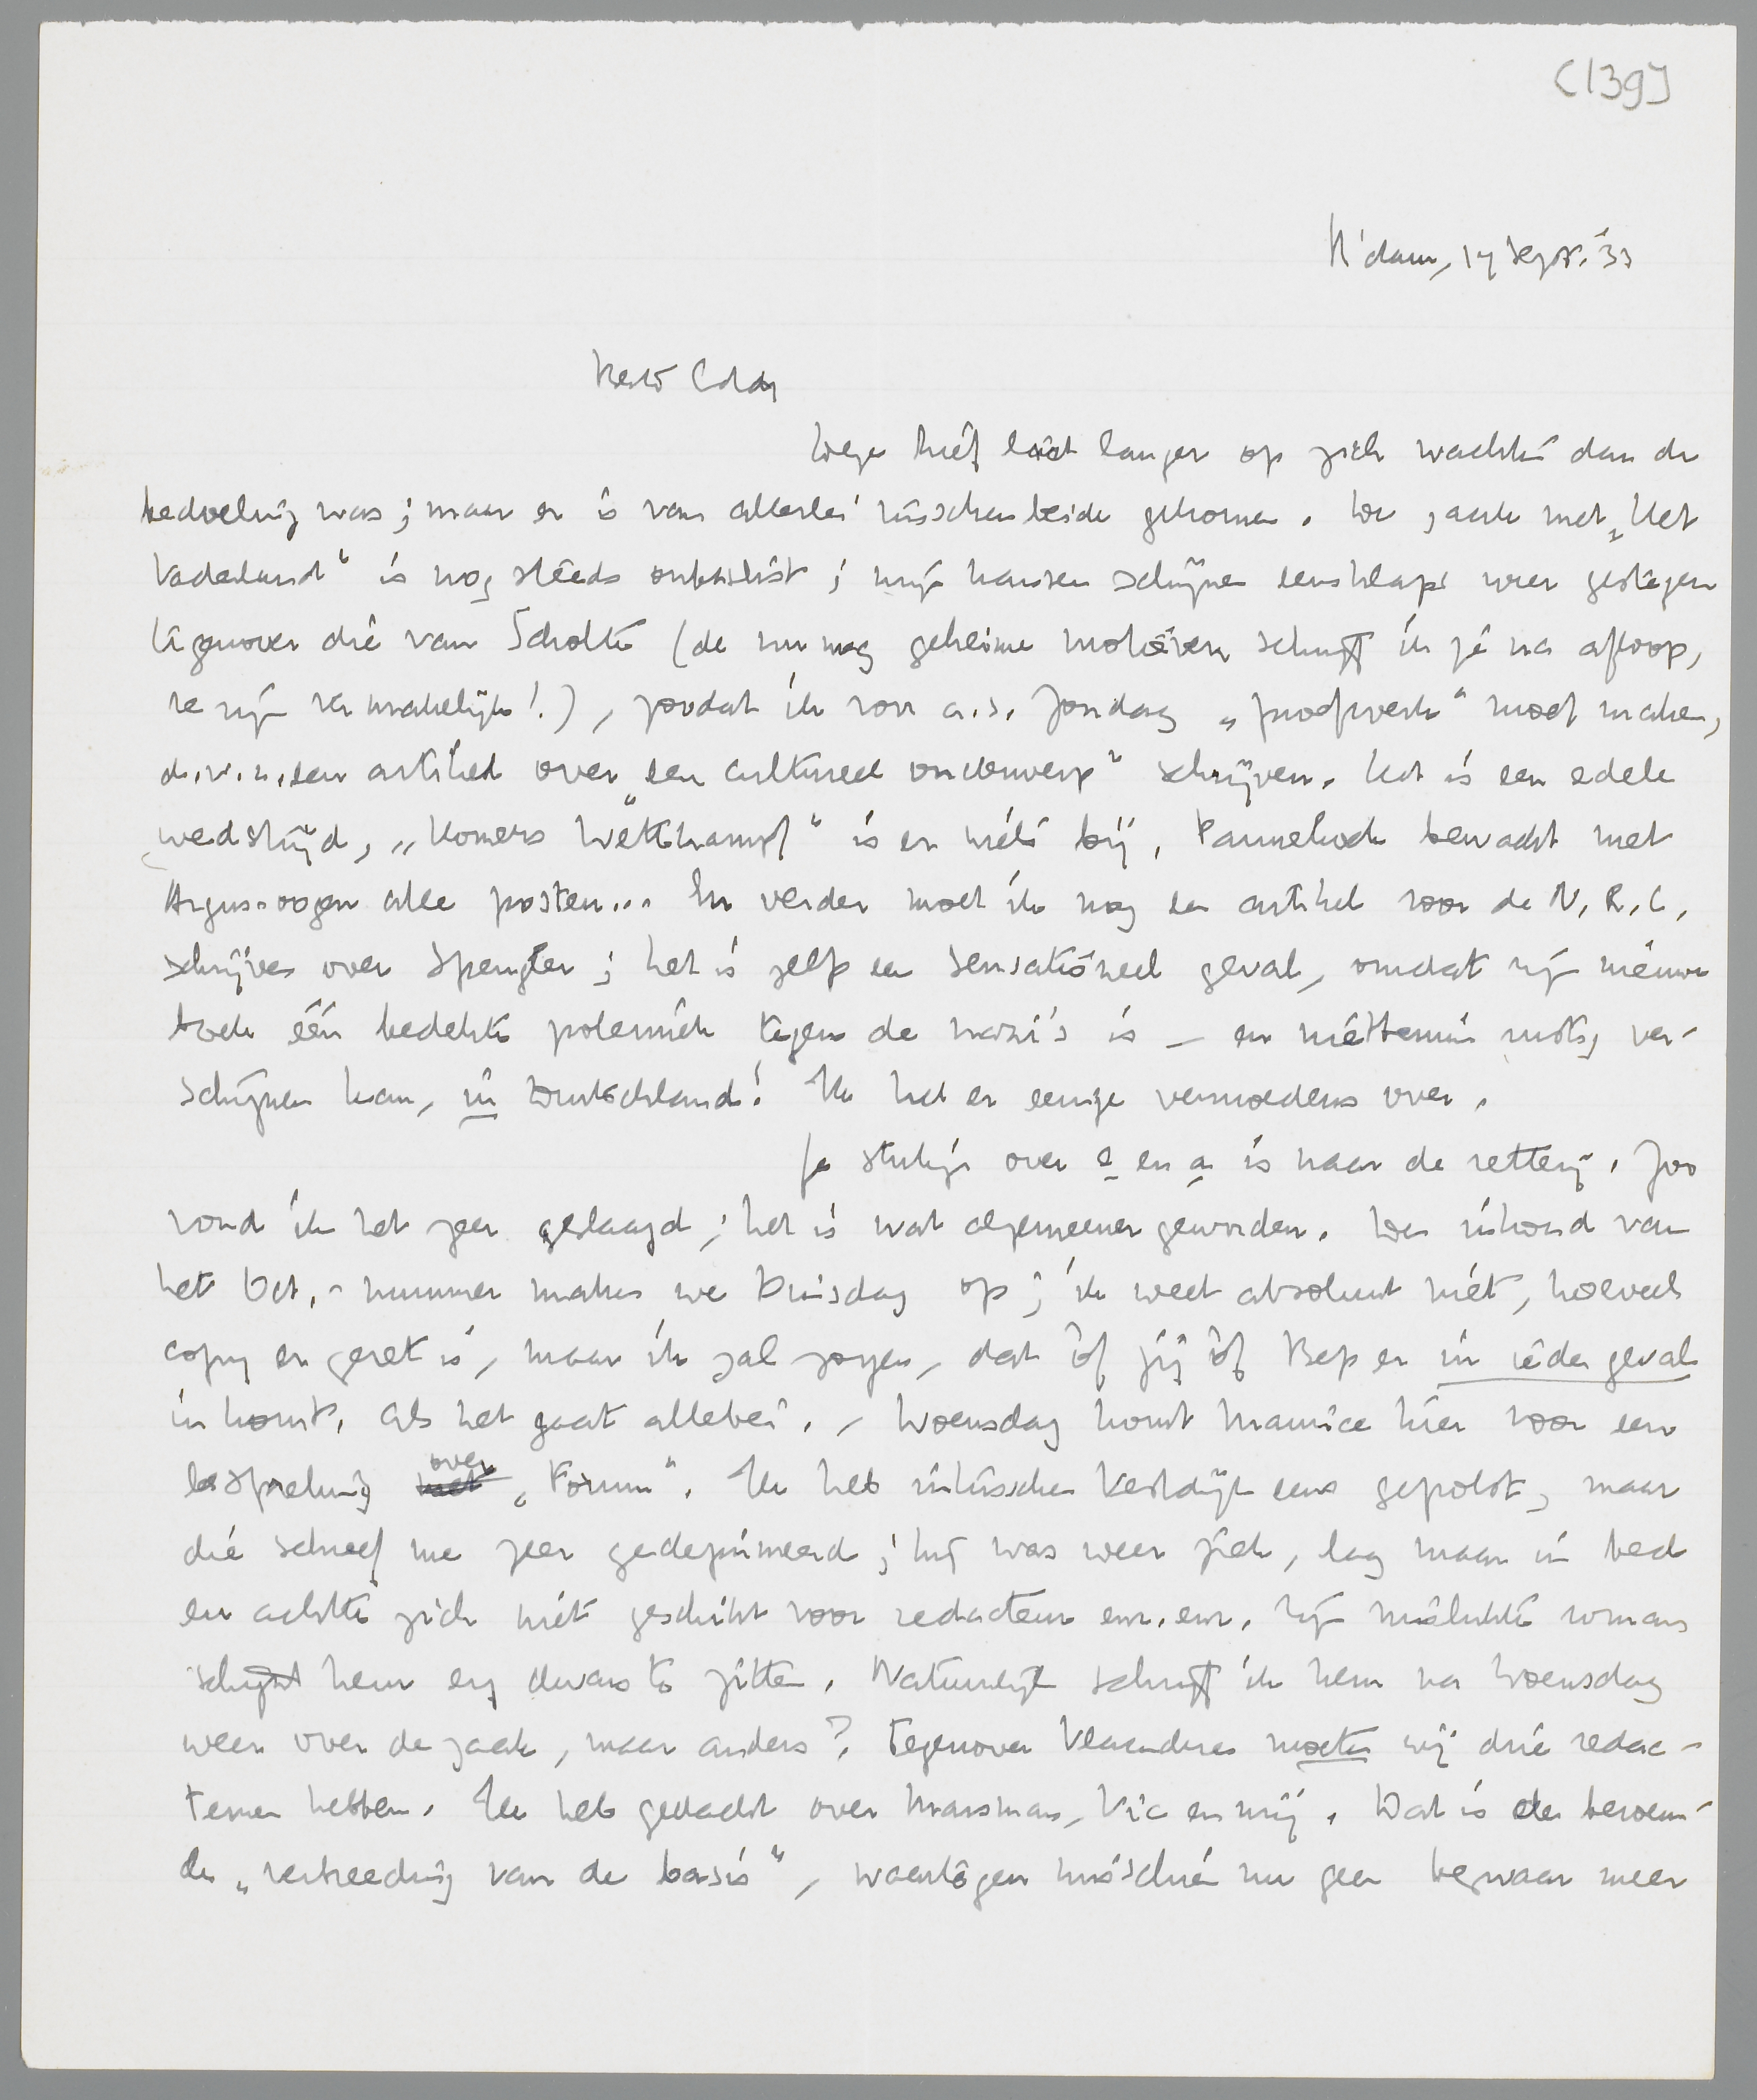 (139)
R'dam, 17 Sept. '33
Beste Eddy
Deze brief laat langer op zich wachten dan de
bedoeling was; maar er is van allerlei tusschenbeide gekomen. De zaak met „Het
Vaderland" is nog steeds onbeslist; mijn kansen schijnen eenskaps weer gestegen
tegenover die van Scholte (de nu nog geheime motieven schrijf ik je na afloop,
ze zijn vermakelijk!), zoodat ik voor a.s. Zondag „proefwerk" moet maken,
d.w.z. een artikel over „een cultureel onderwerp" schrijven. Het is een edele
wedstrijd, „Homers Wettkampf" is er niets bij, Pannekoek bewaakt met
Argus-oogen alle posten... En verder moet ik nog een artikel voor de N.R.C.
schrijven over Spengler; het is zelf een sensationeel geval, omdat zijn nieuwe
boek één bedekte polemiek tegen de nazi's is – en niettemin rustig ver-
schijnen kan, in Duitschland! Ik heb er eenige vermoedens over.
Je stukje over e en a is naar de zetterij. Zoo
vond ik het zeer geslaagd; het is wat algemeener geworden. Den inhoud van
het Oct.-nummer maken we Dinsdag op; ik weet absoluut niet, hoeveel
copy er gezet is, maar ik zal zorgen, dat òf jij òf Bep er in ieder geval
in komt. Als het gaat allebei. – Woensdag komt Maurice hier voor een
bespreking over „Forum". Ik heb intusschen Vestdijk eens gepolst, maar
die schreef me zeer gedeprimeerd; hij was weer ziek, lag maar in bed
en achtte zich niet geschikt voor redacteur enz. enz. Zijn mislukte romans
schijnt hem erg dwars te zitten. Natuurlijk schrijf ik hem na Woensdag
weer over de zaak, maar anders? Tegenover Vlaanderen moeten wij drie redac-
teuren hebben. Ik heb gedacht over Marsman, Vic en mij. Dat is de beroem-
de „verbreeding van de basis", waartegen misschien nu geen bezwaar meer